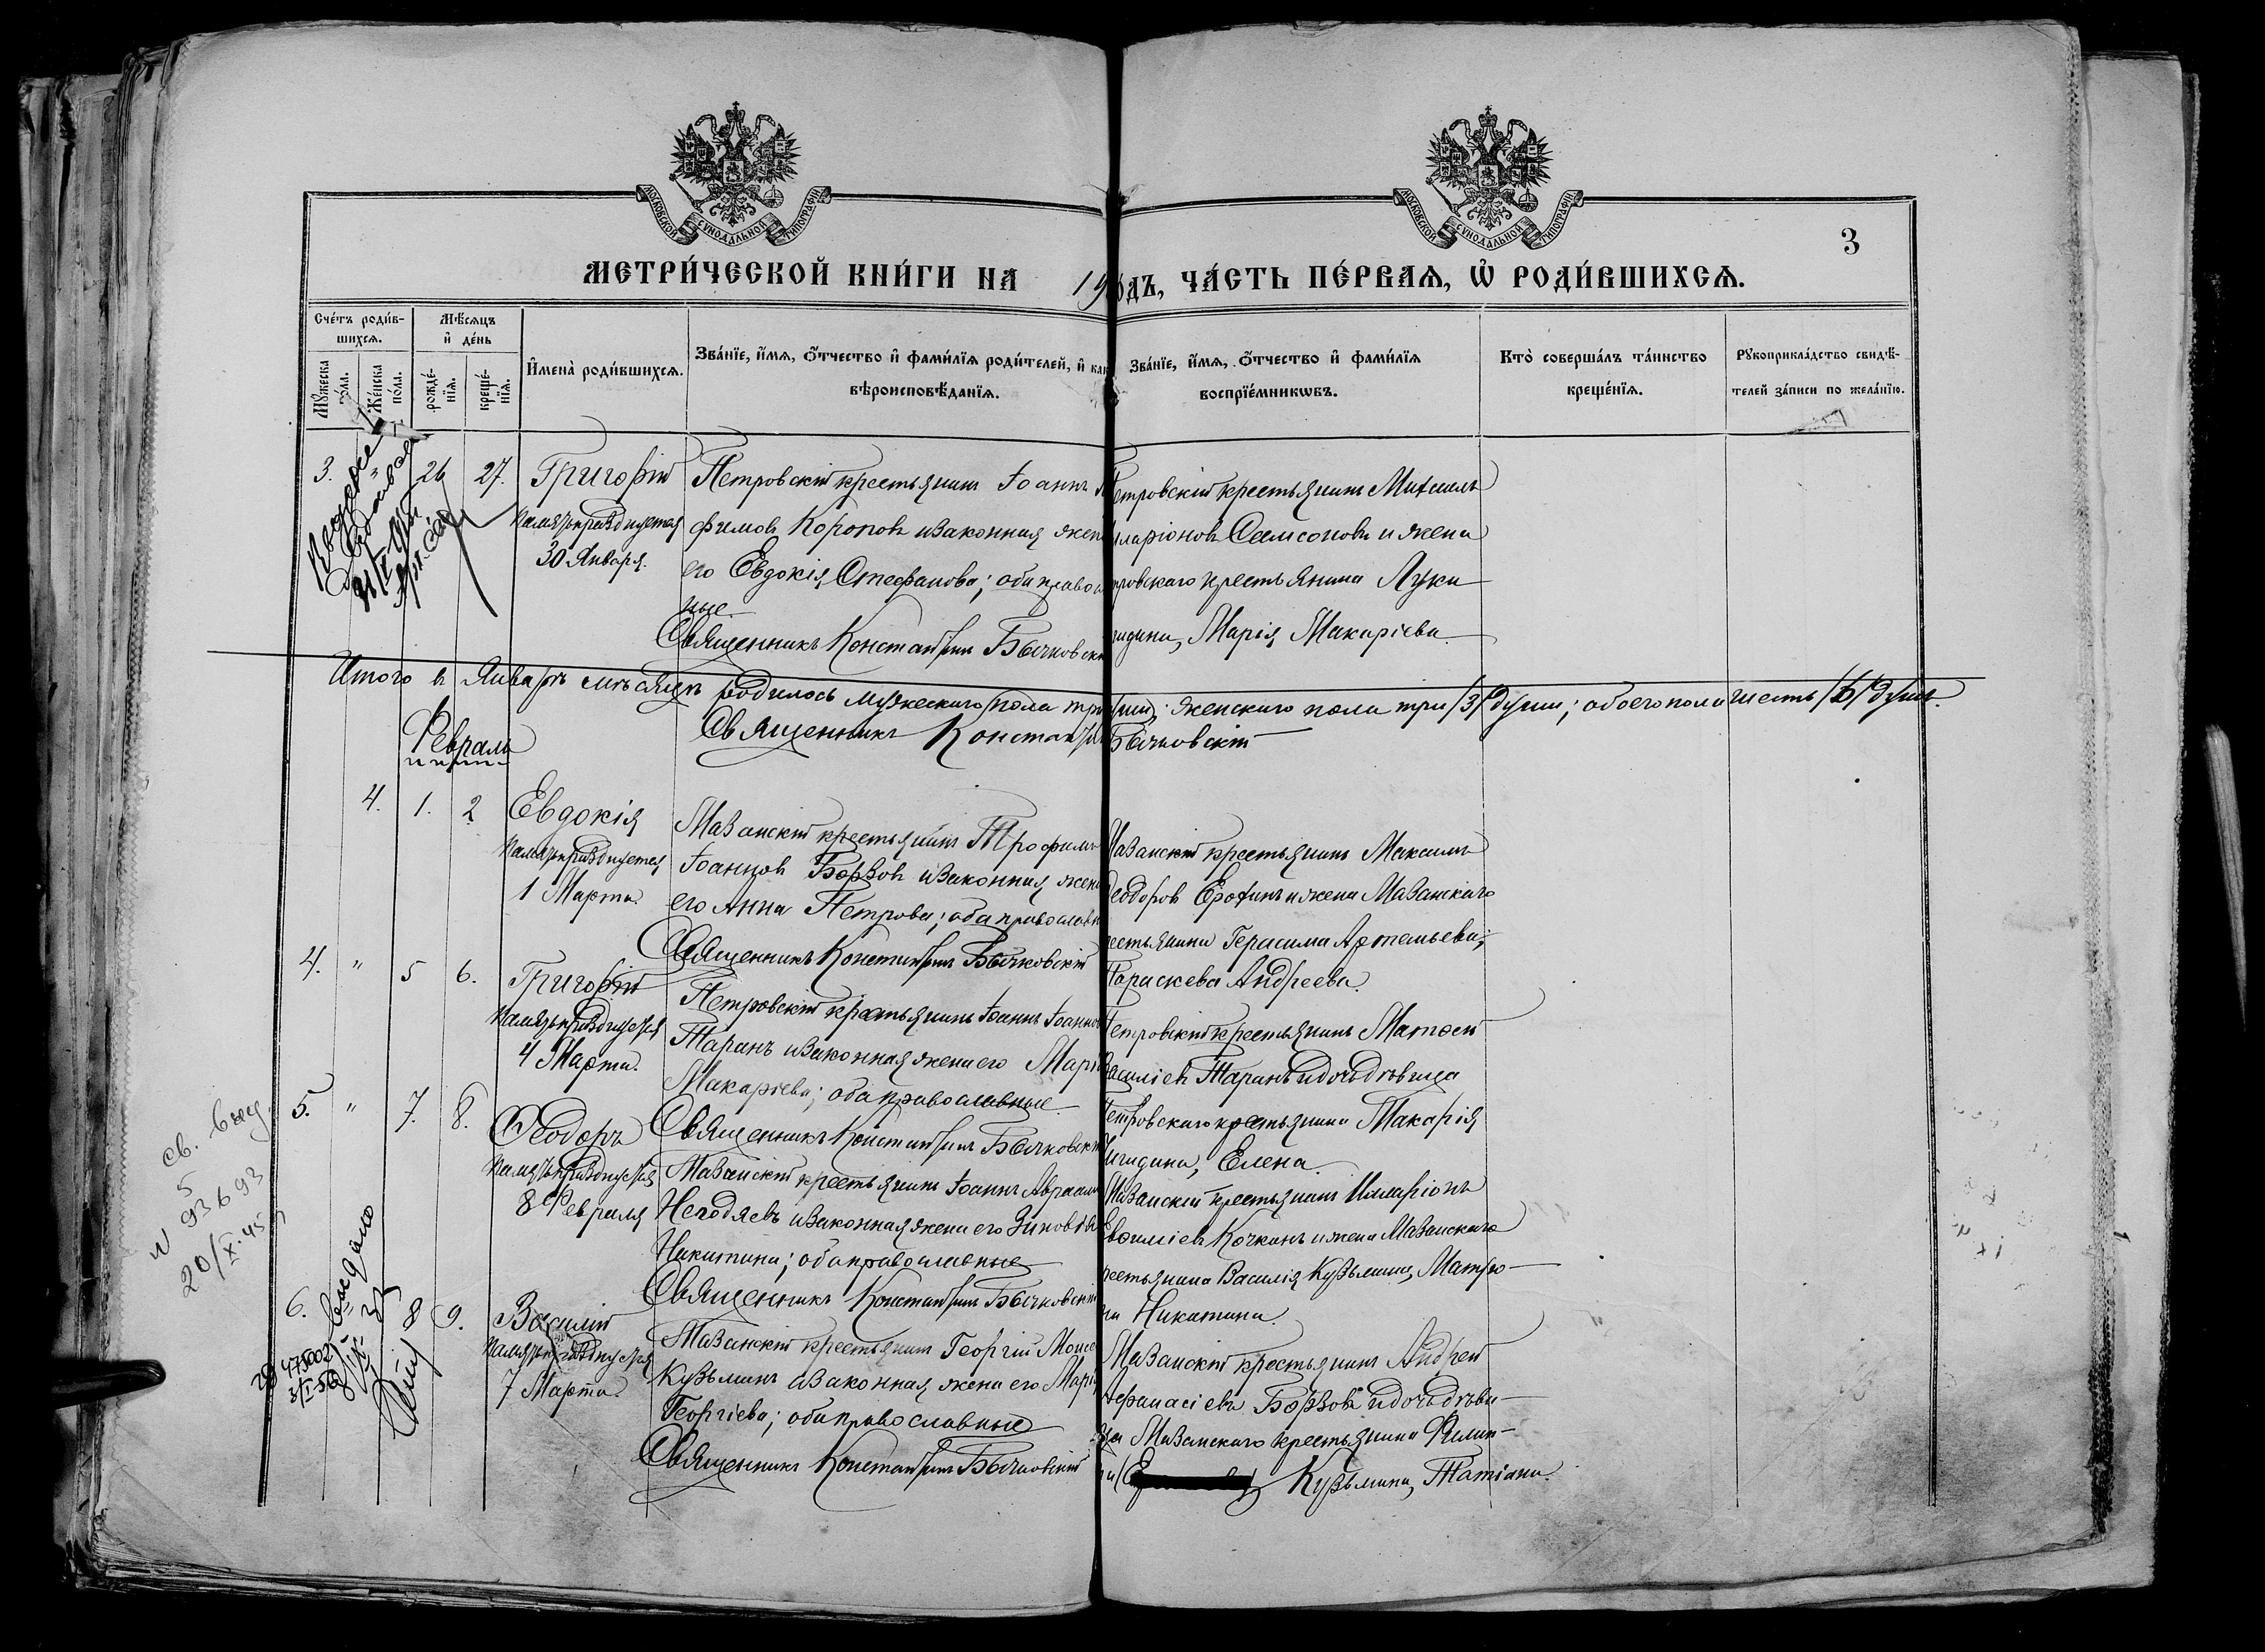 МОСКОВСКОЙ СУНОДАЛЬНОЙ ТИПОГРАФІИ
МОСКОВСКОЙ СУНОДАЛЬНОЙ ТИПОГРАФІИ
3
МЕТРИ́ЧЕСКОЙ КНИ́ГИ НА 19
ѻдъ, ЧА́СТЬ ПЕ́РВАѦ, Ѡ҆ РОДИ́ВШИХСѦ.
Сче́тъ роди́в-
шихсѧ.
Мꙋ́жеска по́ла.
Же́нска по́ла.
Мѣ́сѧцъ
и҆ де́нь
рожде́-
нїѧ.
креще́-
нїѧ.
И҆мена̀ роди́вшихсѧ.
Зва́нїе, и҆́мѧ, ѻ҆́тчество и҆ фами́лїѧ роди́телей, и҆ как
вѣроисповѣ́данїѧ.
Зва́нїе, и҆́мѧ, ѻ҆́тчество и҆ фами́лїѧ
воспрїе́мникѡвъ.
Кто̀ соверша́лъ та́инство
креще́нїѧ.
Рꙋкоприкла́дство свидѣ́-
телей за́писи по жела́нїю.
3. " 26 27. Григорій
память празднуется
30 Января.
Петровскій крестьянинъ Іоаннъ
фимовъ Коропов и законная жен
его Евдокія Стефанова; оба правосл
ные
Священникъ Константинъ Бычковскі
етровскій крестьянинъ Михаилъ
иларіоновъ Самсоновъ и жена
тровскаго крестьянина Луки
Марія Макаріева.
Итого въ Январѣ мѣсяцѣ родилось мужескаго пола три
женскаго пола три /3/ души; обоего пола шесть /6/ душъ.
Священникъ Константи
Бычковскій
Февраль
4. 1. 2 Евдокія
память празднуется
1 Марта.
Мазанскій крестьянинъ Трофимъ
Іоанновъ Борзов и законная жена
его Анна Петрова; оба православн
Священникъ Константинъ Бычковскій
Мазанскій крестьянинъ Максимъ
Ѳеодоров Ерохинъ и жена Мазанскаго
рестьянина Герасима Артемьева;
Параскева Андреева.
4. " 5 6. Григорій
память празднуется
4 Марта.
Петровскій крестьянинъ Іоаннъ Іоаннов
Таранъ и законная жена его Марі
Макаріева; оба православные
Священникъ Константинъ Бычковскі
Петровскій крестьянинъ Матѳей
Василіев Таранъ и дочь дѣвица
Петровскаго крестьянина Макарія
Чигидина, Елена.
5. " 7. 8. Ѳеодоръ
память празднуется
8 Февраля
Мазанскій крестьянинъ Іоаннъ Авраам
Негодяевъ и законная жена его Зиновія
Никитина; оба православные
Священникъ Константинъ Бычковскій
Мазанскій крестьянинъ Иларіонъ
Кочкинъ и жена Мазанскаго
рестьянина Василія Кузьмина, Матро-
на Никитина.
6. " 8 9. Василій
память празднуется
7 Марта
Мазанскій крестьянинъ Георгій Моисе
Кузьминъ и законная жена его Марія
Георгіева; оба православные
Священникъ Константинъ Бычковскій
Мазанскій крестьянинъ Андрей
Аѳанасіевъ Борзовъ и дочь дѣви-
ца Мазанскаго крестьянина Филип-
па Кузьмина, Татіана.
св.
5
N 93693
20/X.45
выдано